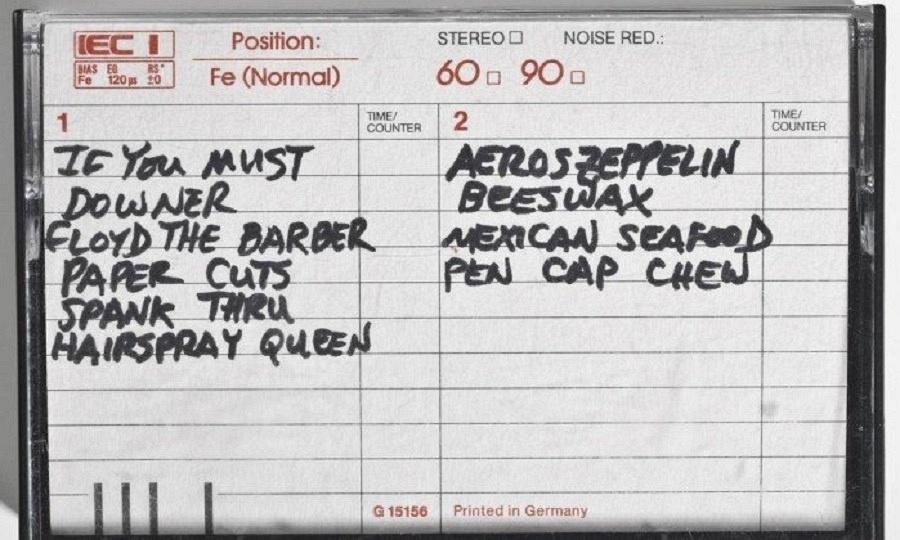 IEC I
BIAS EQ RS*
Fe 120µs ±0
Position:
Fe (Normal)
STEREO □ NOISE RED.:
60 □ 90 □
1 TIME/
COUNTER
IF YOU MUST
DOWNER
FLOYD THE BARBER
PAPER CUTS
SPANK THRU
HAIRSPRAY QUEEN
2 TIME/
COUNTER
AEROSZEPPELIN
BEESWAX
MEXICAN SEAFOOD
PEN CAP CHEW
G 15156 Printed in Germany